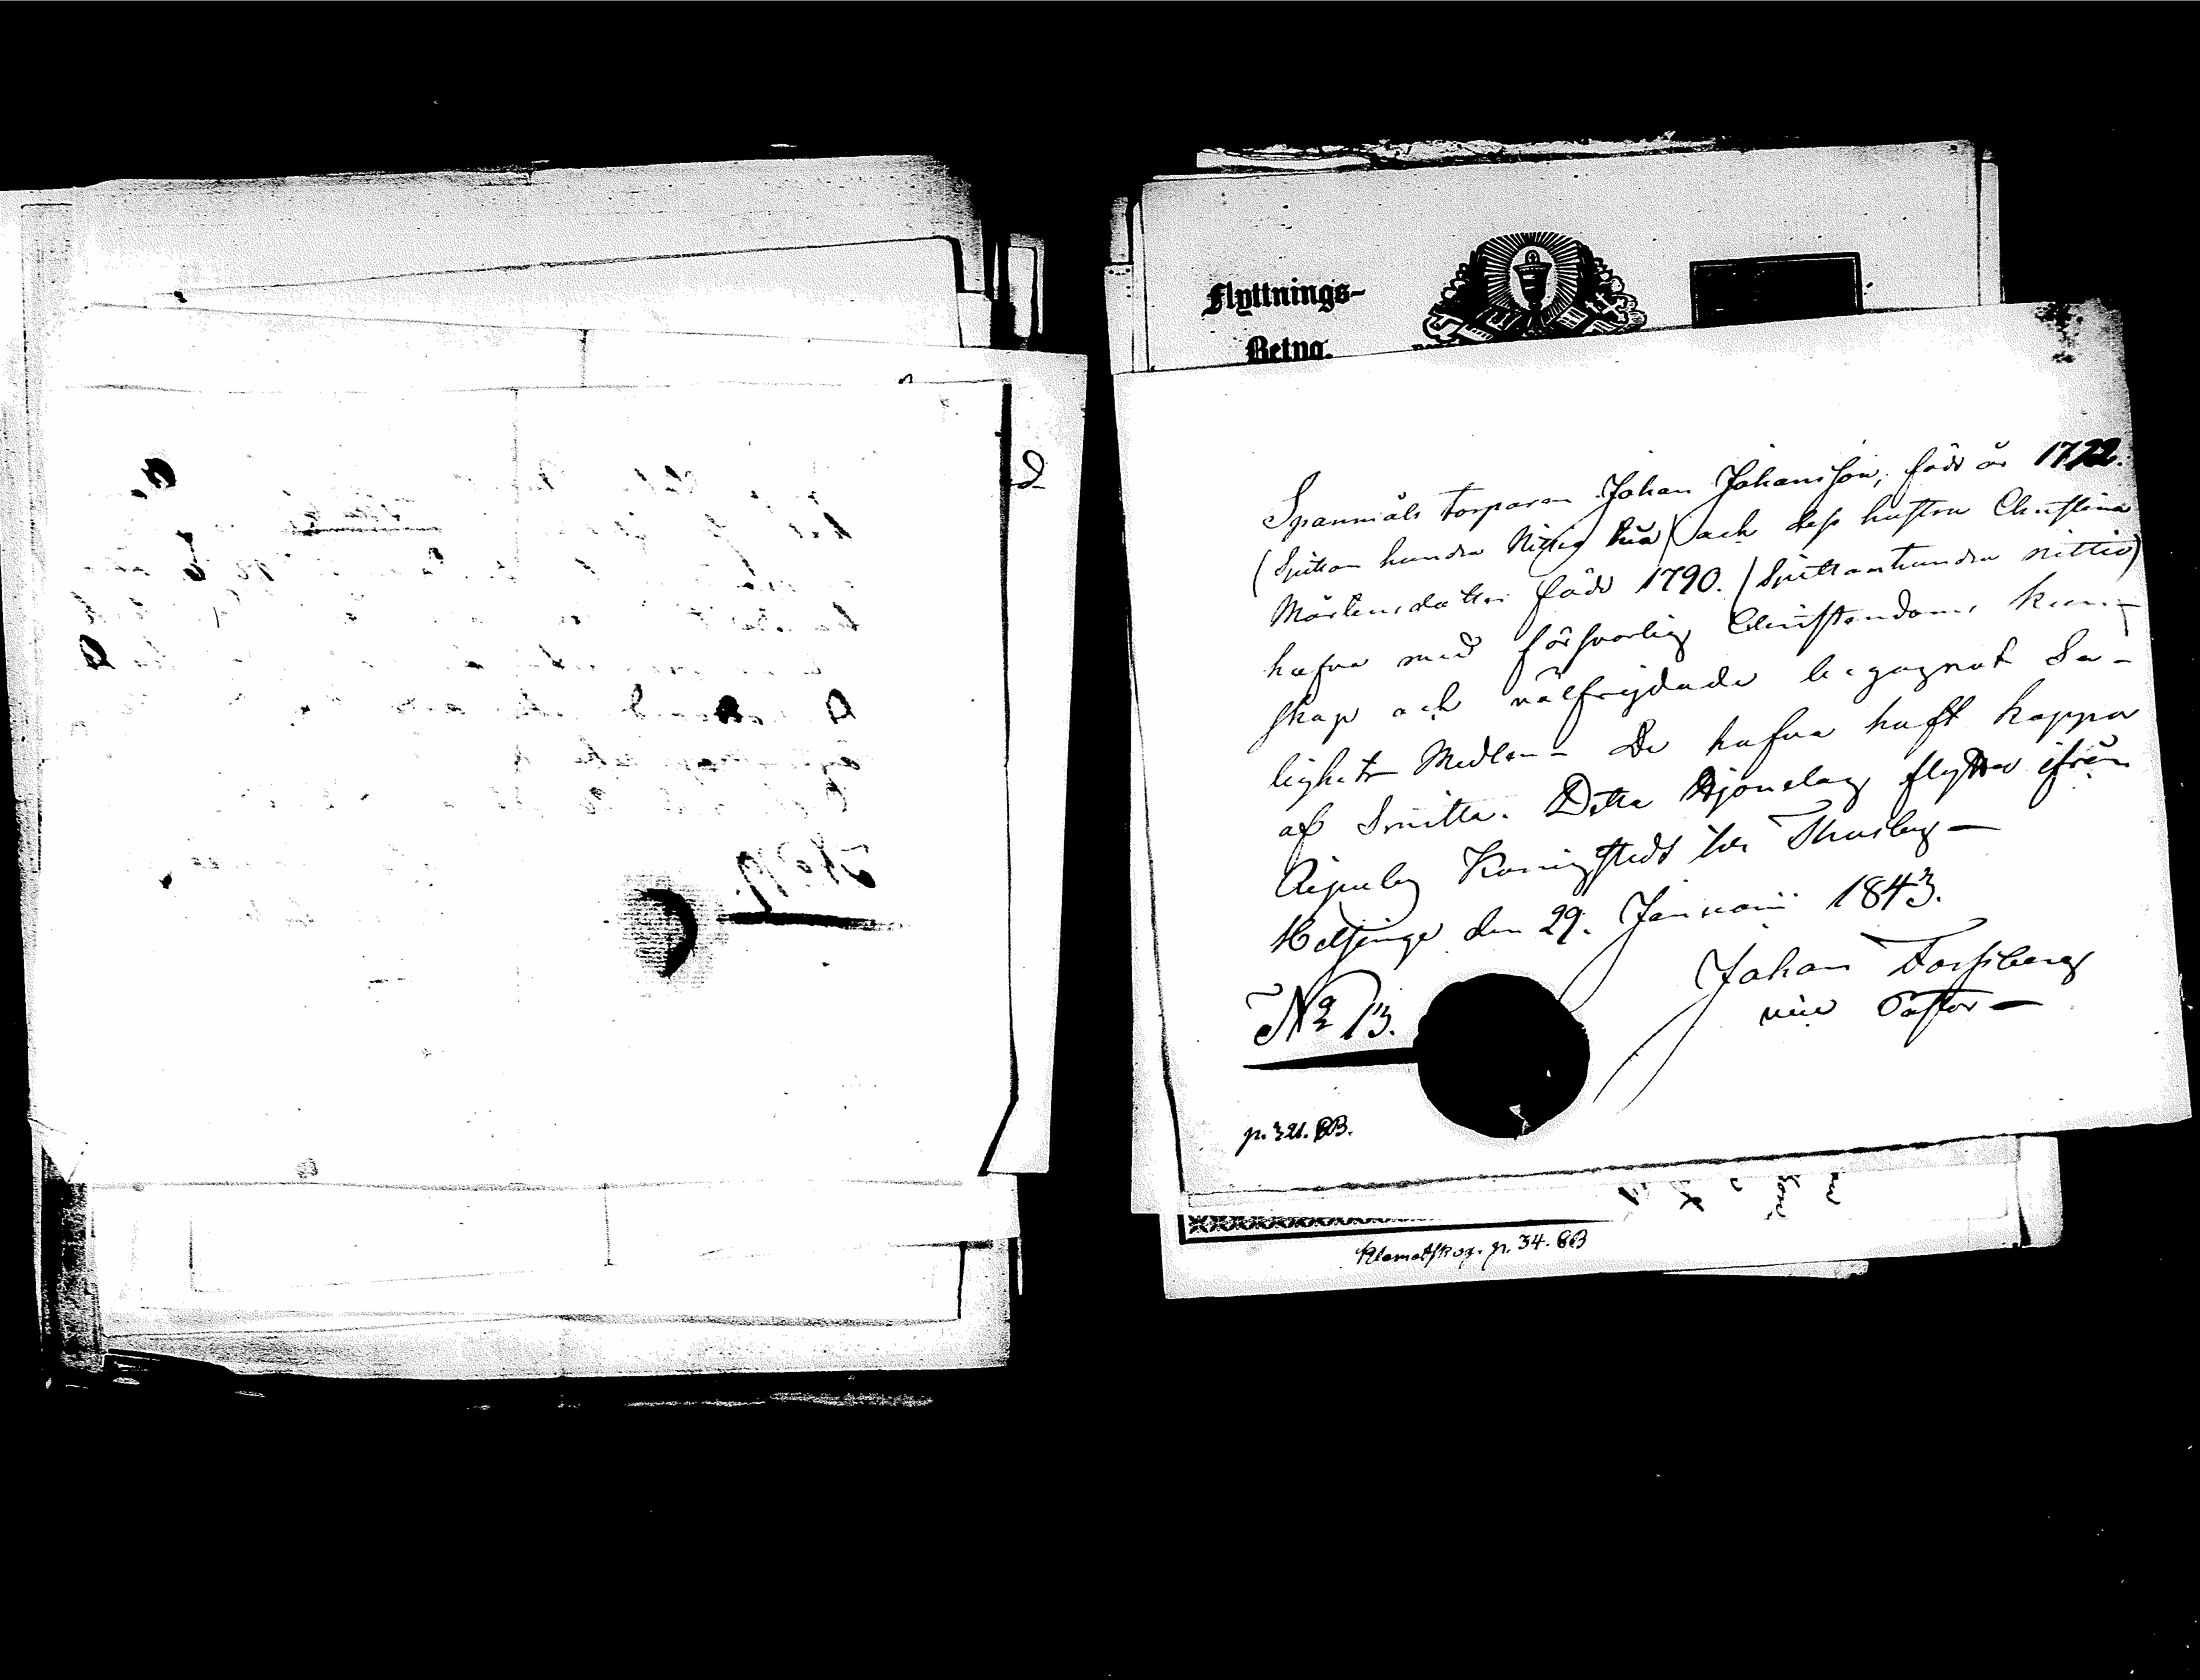 Flyttnings-
Betyg.
Spanmåls torparen Johan Johansson, född år 1792.
(Sjutton hundra Nittio två) och dess hustru Christina
Mårtensdotter född 1790. (Sjuttonhundra nittio)
hafva med försvarlig Christendoms kun-
skap och välfrejdade begagnat Sa-
lighets Medlen - De hafva haft koppor
af Smitta. Detta Hjonelag flyttar ifrån
Ripuby Königstedt till Thusby -
Helsinge den 29. Januarii 1843.
Johan Forssberg
vice Pastor -
No 13.
p. 321. BB.
Klemetskog. p. 34. BB